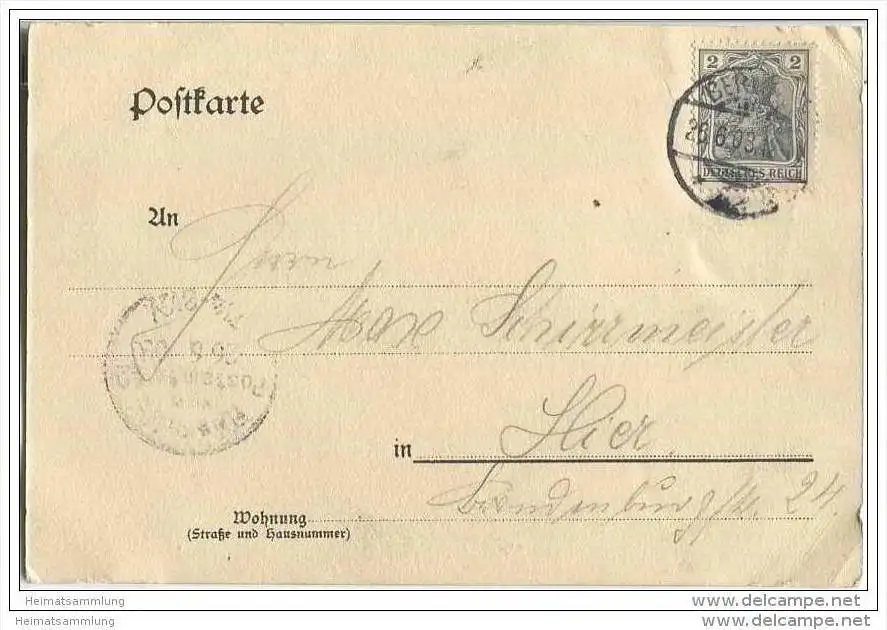 Postkarte
2 2
BER
26.6.03
DEUTSCHES REICH
An
Herrn
Max Schirrmeister
in Hier
Brandenburgstr. 24.
Wohnung
(Straße und Hausnummer)
Postamt
Heimatsammlung
Heimatsammlung
www.delcampe.net
www.delcampe.net